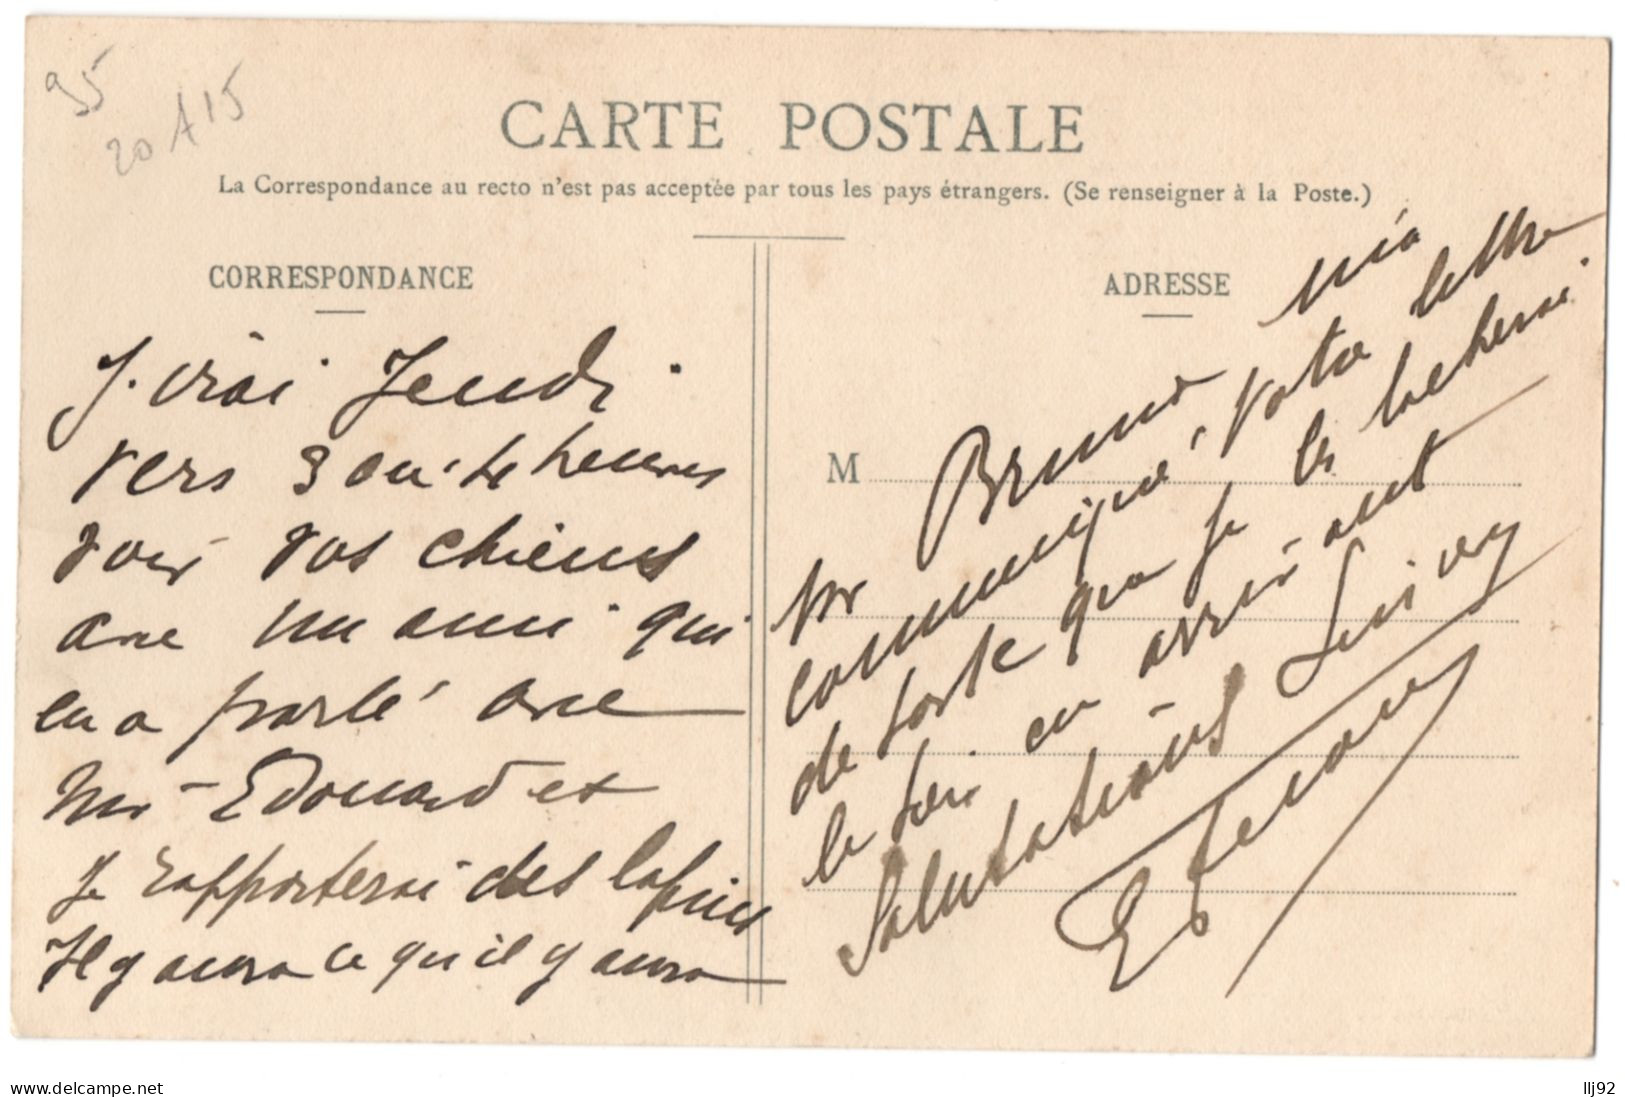 95
20 A 15
CARTE POSTALE
La Correspondance au recto n'est pas acceptée par tous les pays étrangers. (Se renseigner à la Poste.)
CORRESPONDANCE
J'irai Jeudi
vers 3 ou 4 heures
voir vos chiens
avec un ami qui
en a parlé avec
Mr Edouard et
Je rapporterai des lapins
Il y aura ce qu'il y aura
ADRESSE
M
Mr Bruno m'a
communiqué votre lettre
de sorte que je les lacherai
le soir en arrivant
Salutations
www.delcampe.net
llj92